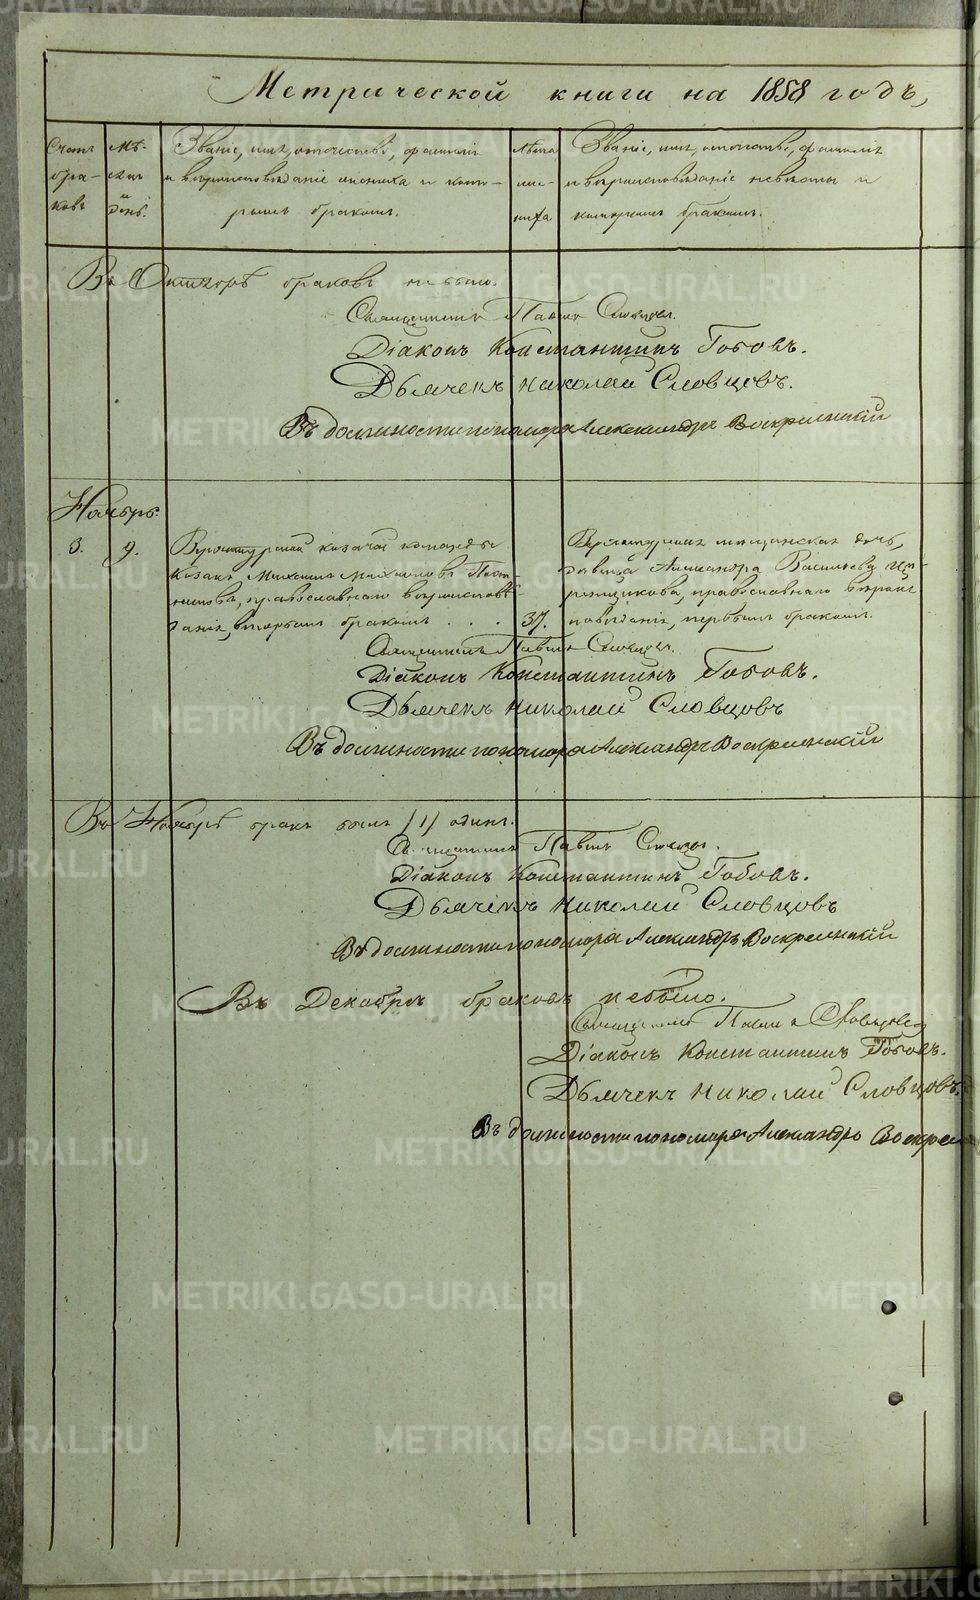 Метрической книги на 1858 годъ,
Счетъ бра- ковъ
Мѣ- сяцъ и день.
Званіе, имя, отечество, фамилія
и вѣроисповѣданіе жениха и кото-
рымъ бракомъ.
Лѣта же- ниха
Званіе, имя, отечество, фамилія
и вѣроисповѣданіе невѣсты и
которымъ бракомъ.
Въ Октябрѣ браковъ небыло.
Священникъ Павелъ Словцовъ.
Діаконъ Константинъ Гобовъ.
Дьячекъ Николай Словцовъ.
Въ должности пономаря Александръ Воскресенскій
Ноябрь.
3. 9.
Верхотурской казачей команды
казакъ Михаилъ Михаиловъ
православнаго вѣроисповѣ-
данія, вторымъ бракомъ . . . 37.
Верхотурская мѣщанская дочь,
дѣвица Александра Васильева
православнаго вѣроис-
повѣданія, первымъ бракомъ.
Священникъ Павелъ Словцовъ.
Діаконъ Константинъ Гобовъ.
Дьячекъ Николай Словцовъ
Въ должности пономаря Александръ Воскресенскій
Въ Ноябрѣ бракъ былъ /1/ одинъ.
Священникъ Павелъ Словцовъ.
Діаконъ Константинъ Гобовъ.
Дьячекъ Николай Словцовъ
Въ должности пономаря Александръ Воскресенскій
Въ Декабрѣ браковъ небыло.
Священникъ Павелъ Словцовъ
Діаконъ Константинъ Гобовъ.
Дьячекъ Николай Словцовъ.
Въ должности пономаря Александръ Воскресе
METRIKI.GASO-URAL.RU